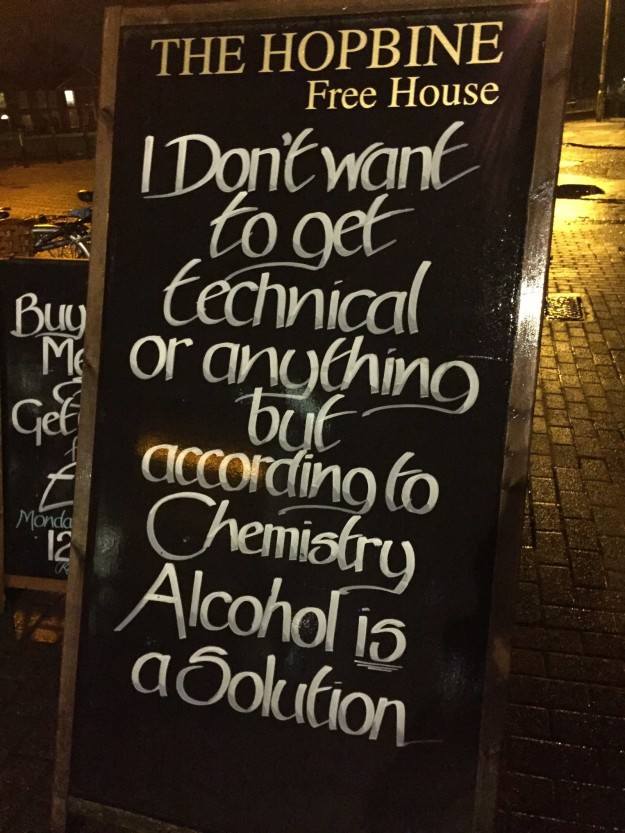 THE HOPBINE
Free House
I Don't want
to get
technical
or anything
but
according to
Chemistry
Alcohol is
a Solution
Buy
Me
Get
Monda
12